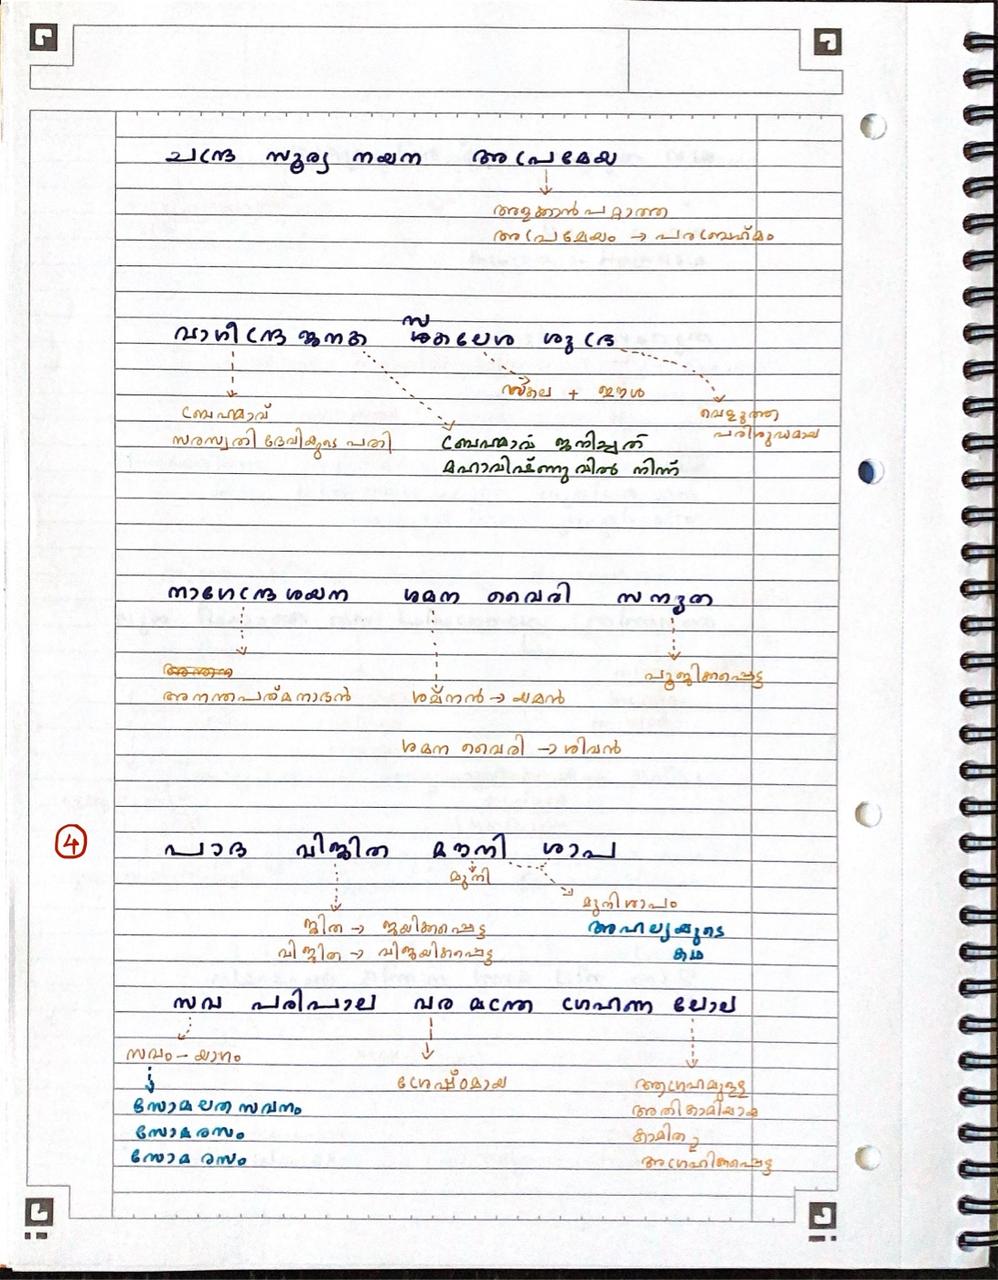 ചന്ദ്ര സൂര്യ നയന അപ്രമേയ
അളക്കാൻ പറ്റാത്ത
അപ്രമേയം → പരബ്രഹ്മം
സ
വാഗീന്ദ്ര ജനക ശകലേശ ശുഭ്ര
സകല + ഈശ
ബ്രഹ്മാവ്
സരസ്വതി ദേവിയുടെ പതി
വെളുത്ത
പരിശുദ്ധമായ
ബ്രഹ്മാവ് ജനിച്ചത്
മഹാവിഷ്ണുവിൽ നിന്ന്
നാഗേന്ദ്ര ശയന ശമന വൈരി സന്നുത
പൂജിക്കപ്പെട്ട
അനന്തപത്മനാഭൻ ശമനൻ → യമൻ
ശമന വൈരി → ശിവൻ
4 പാദ വിജിത മൗനി ശാപ
മുനി
മുനിശാപം
ജിത → ജയിക്കപ്പെട്ട അഹല്യയുടെ
വിജിത → വിജയിക്കപ്പെട്ട കഥ
സവ പരിപാല വര മന്ത്ര ഗ്രഹണ ലോല
സവം - യാഗം
ശ്രേഷ്ഠമായ ആഗ്രഹമുള്ള
സോമലത സവനം അതികാമിയായ
സോമരസം കാമിത
സോമ രസം ആഗ്രഹിക്കപ്പെട്ട